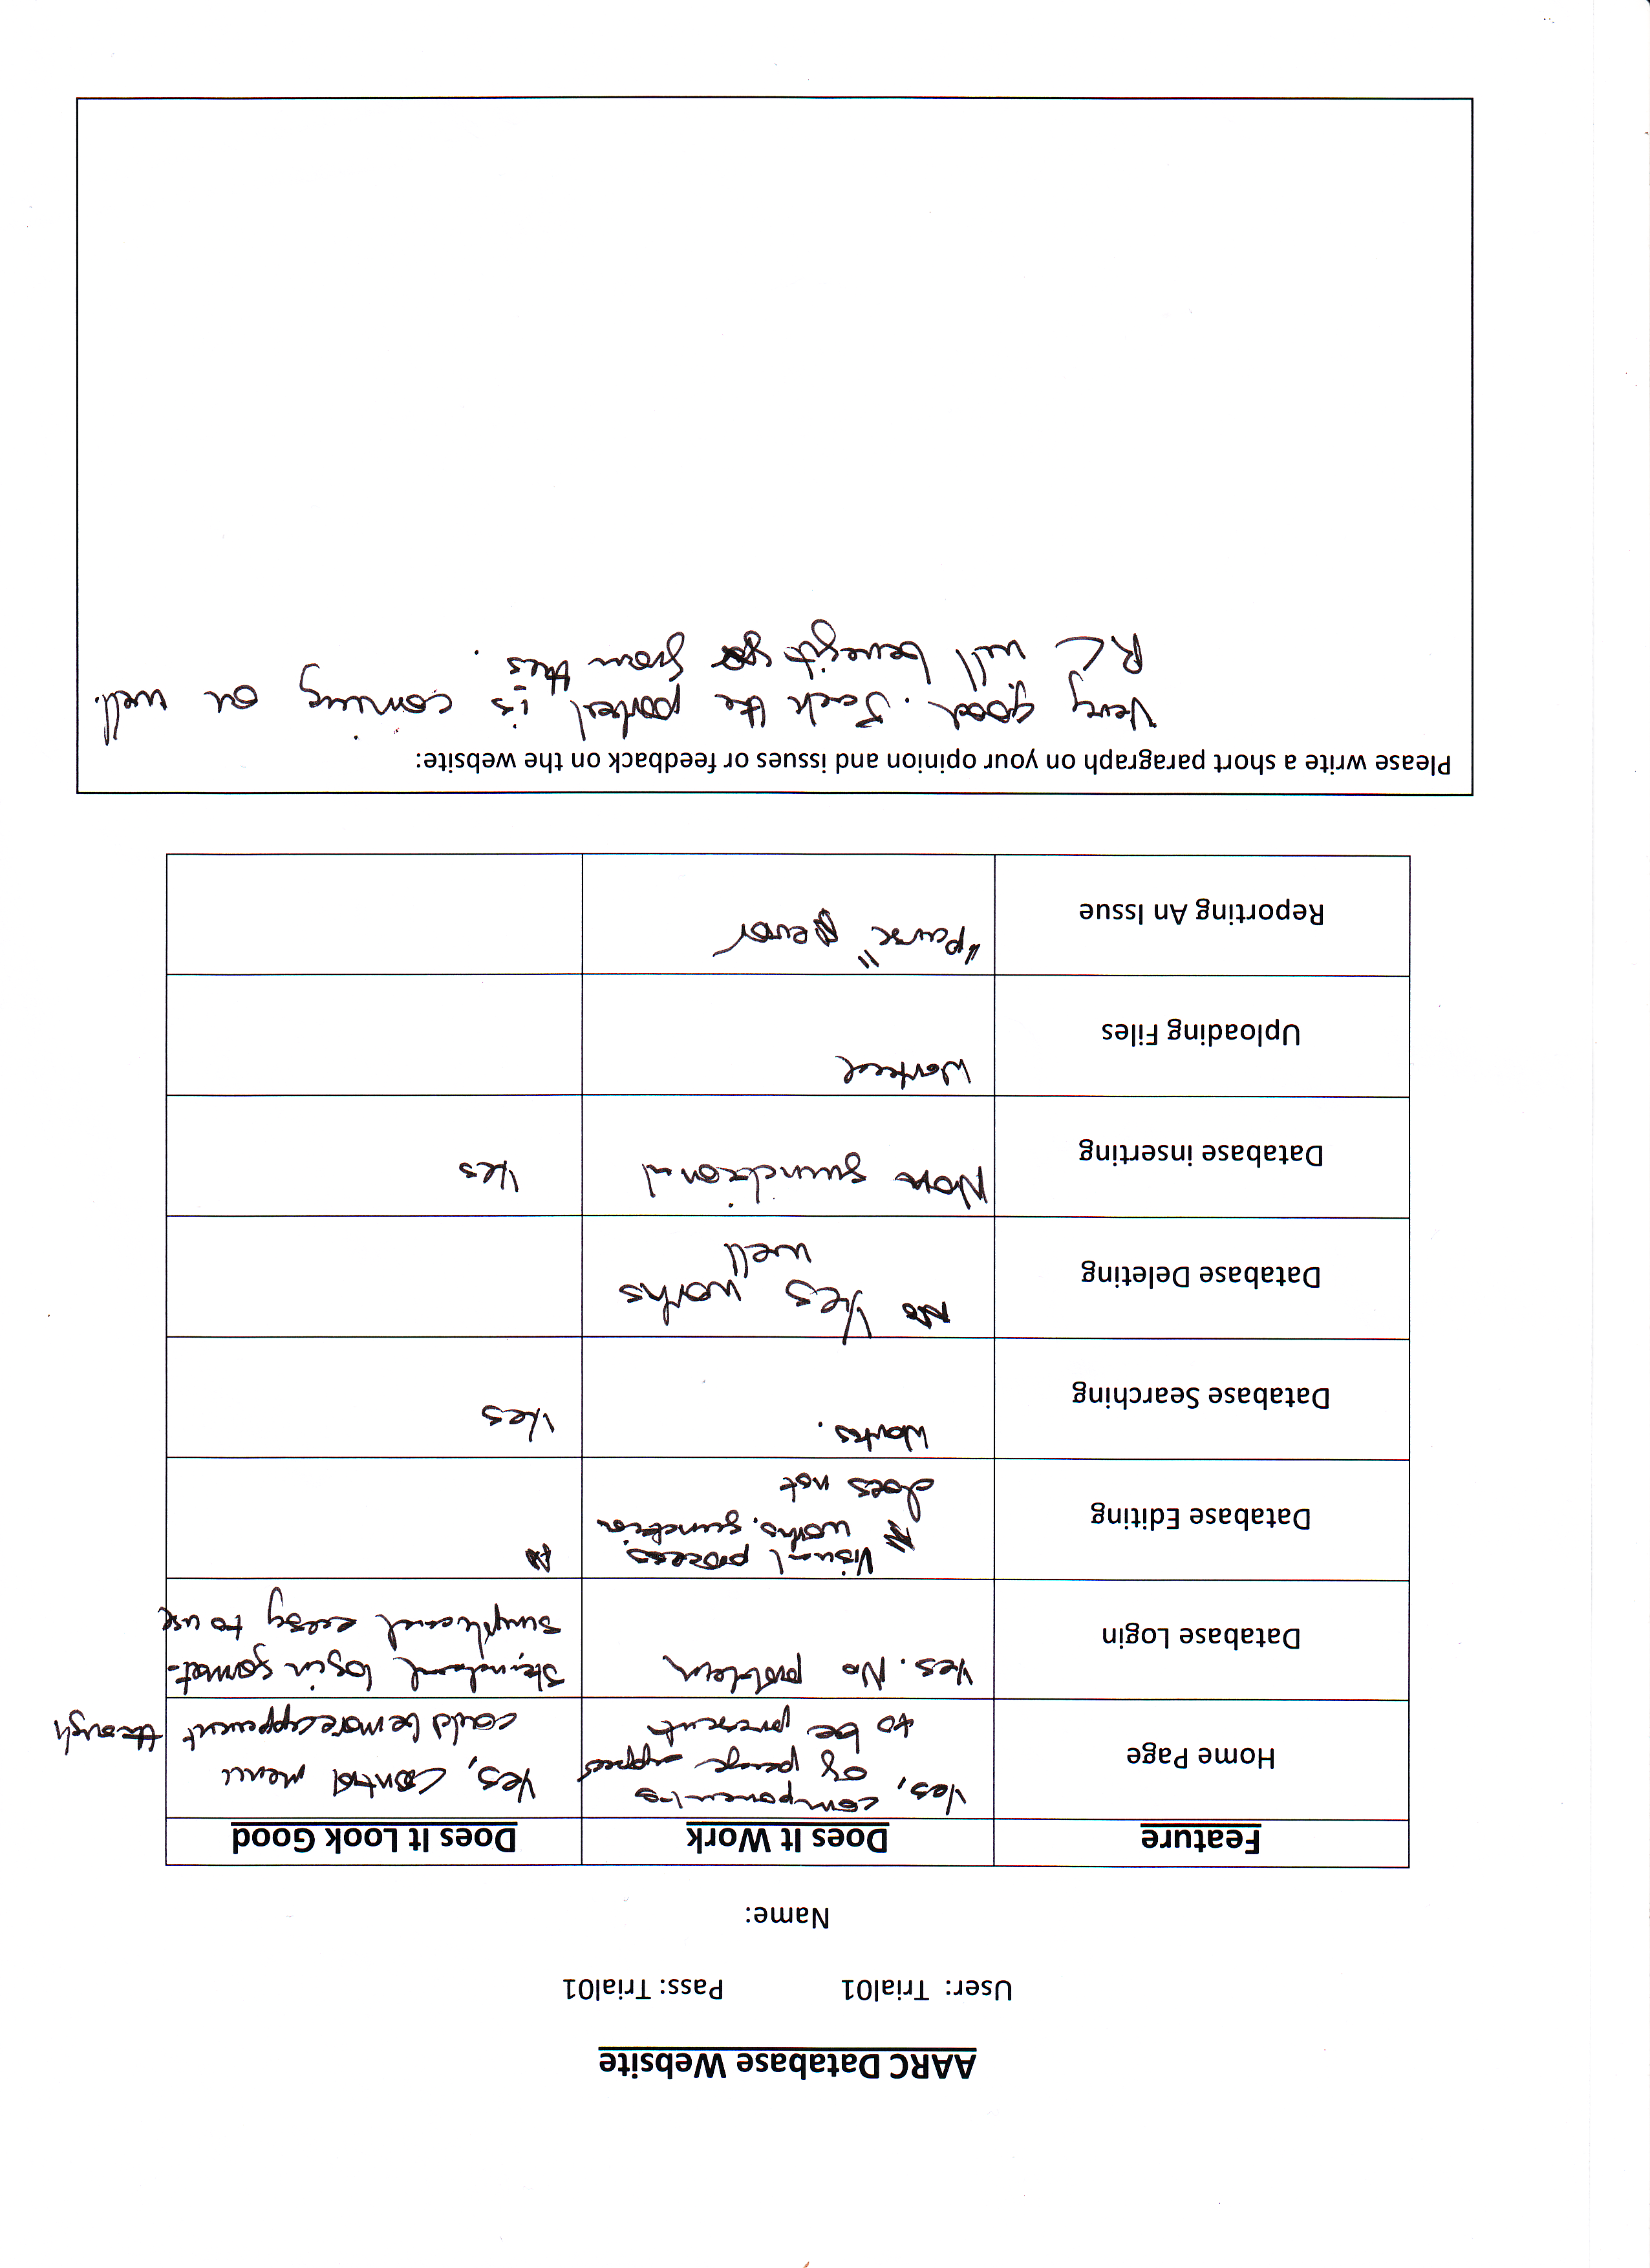 AARC Database Website
User: Trial01 Pass: Trial01
Name:
Feature Does It Work Does It Look Good
Home Page
Yes, components
of page appear
to be present
Yes, Control menu
could be more apparent though
Database Login
Yes. No problem
Standard login format-
simple and easy to use
Database Editing
Visual process
works. function
does not
Database Searching
Works.
Yes
Database Deleting
No Yes works
well
Database inserting
Non functional
Yes
Uploading Files
Worked
Reporting An Issue
"Parse" error
Please write a short paragraph on your opinion and issues or feedback on the website:
Very good. Jack the portal is coming on well.
RC will benefit from this.